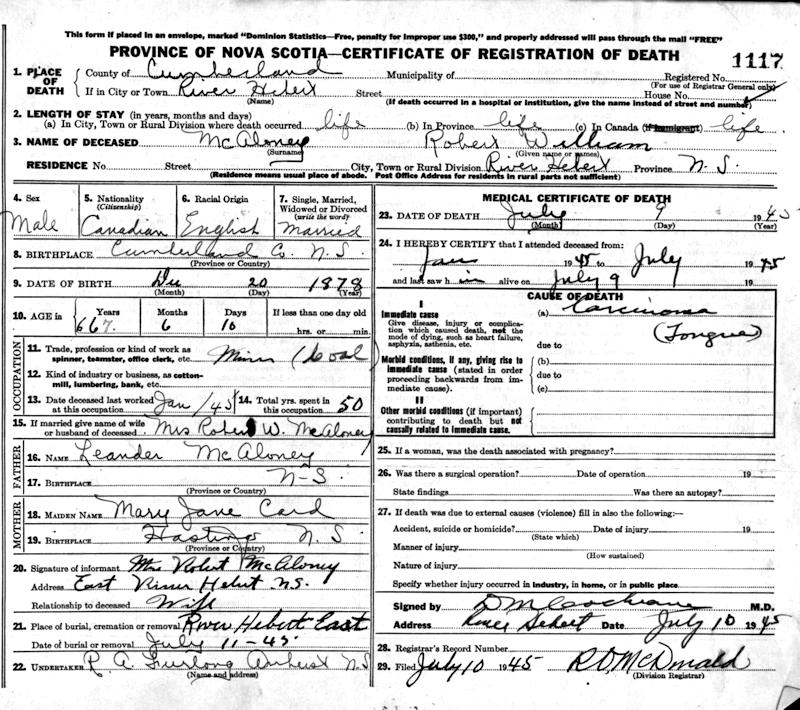 This form if placed in an envelope, marked "Dominion Statistics—Free, penalty for improper use $300," and properly addressed will pass through the mail "FREE"
PROVINCE OF NOVA SCOTIA—CERTIFICATE OF REGISTRATION OF DEATH
1117
1. PLACE OF DEATH { County of Cumberland Municipality of Registered No.
(For use of Registrar General only)
If in City or Town River Hebert Street House No.
(Name) (If death occurred in a hospital or institution, give the name instead of street and number)
2. LENGTH OF STAY (in years, months and days)
(a) In City, Town or Rural Division where death occurred life (b) In Province life (c) In Canada (if immigrant) life
3. NAME OF DECEASED McAloney Robert William
(Surname) (Given name or names)
RESIDENCE No. Street City, Town or Rural Division River Hebert Province N.S.
(Residence means usual place of abode. Post Office Address for residents in rural parts not sufficient)
4. Sex Male
5. Nationality (Citizenship) Canadian
6. Racial Origin English
7. Single, Married, Widowed or Divorced (write the word) Married
8. BIRTHPLACE Cumberland Co. N.S.
(Province or Country)
9. DATE OF BIRTH Dec 20 1878
(Month) (Day) (Year)
10. AGE in Years Months Days If less than one day old
66 6 hrs. or min.
OCCUPATION
11. Trade, profession or kind of work as spinner, teamster, office clerk, etc. Miner (Coal)
12. Kind of industry or business, as cotton-mill, lumbering, bank, etc.
13. Date deceased last worked at this occupation Jan/45 14. Total yrs. spent in this occupation 50
15. If married give name of wife or husband of deceased Mrs Robert W. McAloney
FATHER
16. NAME Leander McAloney
17. BIRTHPLACE N-S.
(Province or Country)
MOTHER
18. MAIDEN NAME Mary Jane Card
19. BIRTHPLACE Hastings N.S.
(Province or Country)
20. Signature of informant Mrs Robert McAloney
Address East River Hebert N.S.
Relationship to deceased Wife
21. Place of burial, cremation or removal River Hebert East
Date of burial or removal July 11-45
22. UNDERTAKER R. A. Furlong Amherst N.S
(Name and address)
MEDICAL CERTIFICATE OF DEATH
23. DATE OF DEATH July 9 1945
(Month) (Day) (Year)
24. I HEREBY CERTIFY that I attended deceased from:
Jan 1945 to July 1945
and last saw h im alive on July 9 19
CAUSE OF DEATH
I
Immediate cause (a) Carcinoma
Give disease, injury or complication which caused death, not the mode of dying, such as heart failure, asphyxia, asthenia, etc.
(Tongue)
due to
Morbid conditions, if any, giving rise to immediate cause (stated in order proceeding backwards from immediate cause).
(b)
due to
(c)
II
Other morbid conditions (if important) contributing to death but not causally related to immediate cause.
25. If a woman, was the death associated with pregnancy?
26. Was there a surgical operation? Date of operation 19
State findings Was there an autopsy?
27. If death was due to external causes (violence) fill in also the following:—
Accident, suicide or homicide? Date of injury 19
(State which)
Manner of injury
(How sustained)
Nature of injury
Specify whether injury occurred in industry, in home, or in public place
Signed by D M Cochrane M.D.
Address River Hebert Date July 10 1945
28. Registrar's Record Number
29. Filed July 10 1945 R D McDonald
(Division Registrar)